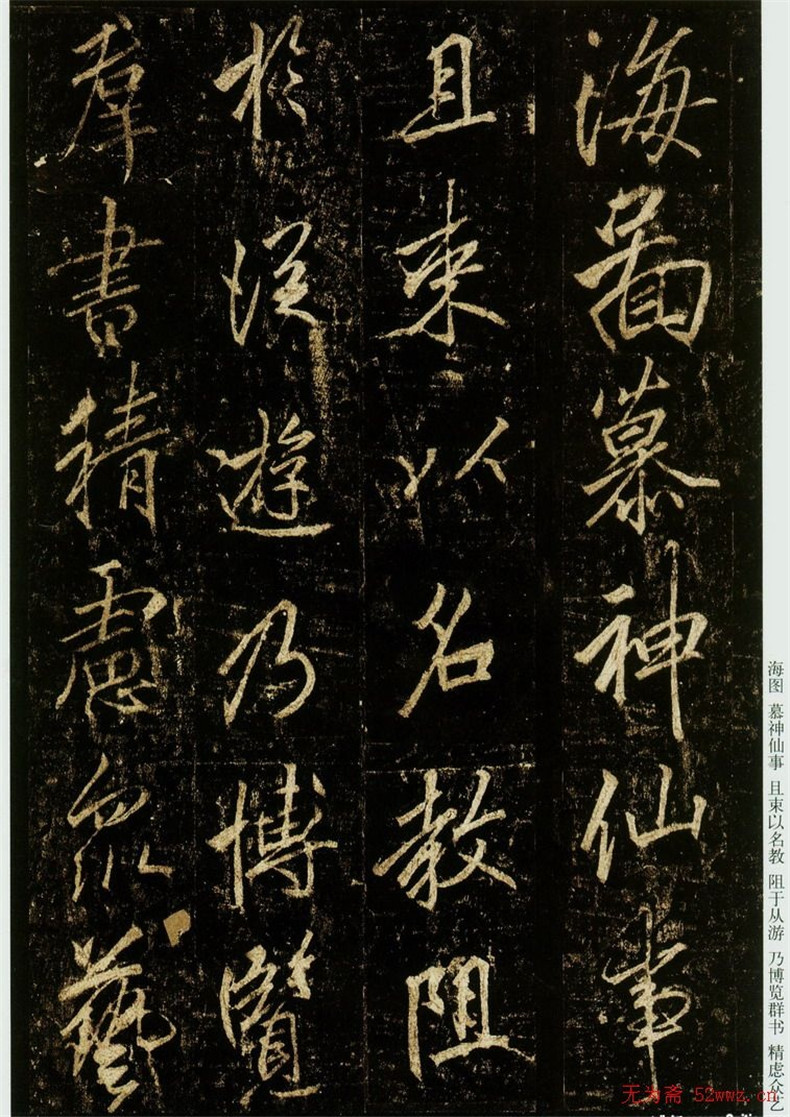 海啚慕神仙事
且束以名教阻
於從遊乃博覽
羣書精慮眾藝
海图 慕神仙事 且束以名教 阻于从游 乃博览群书 精虑众艺
无为斋 52wwz.cn